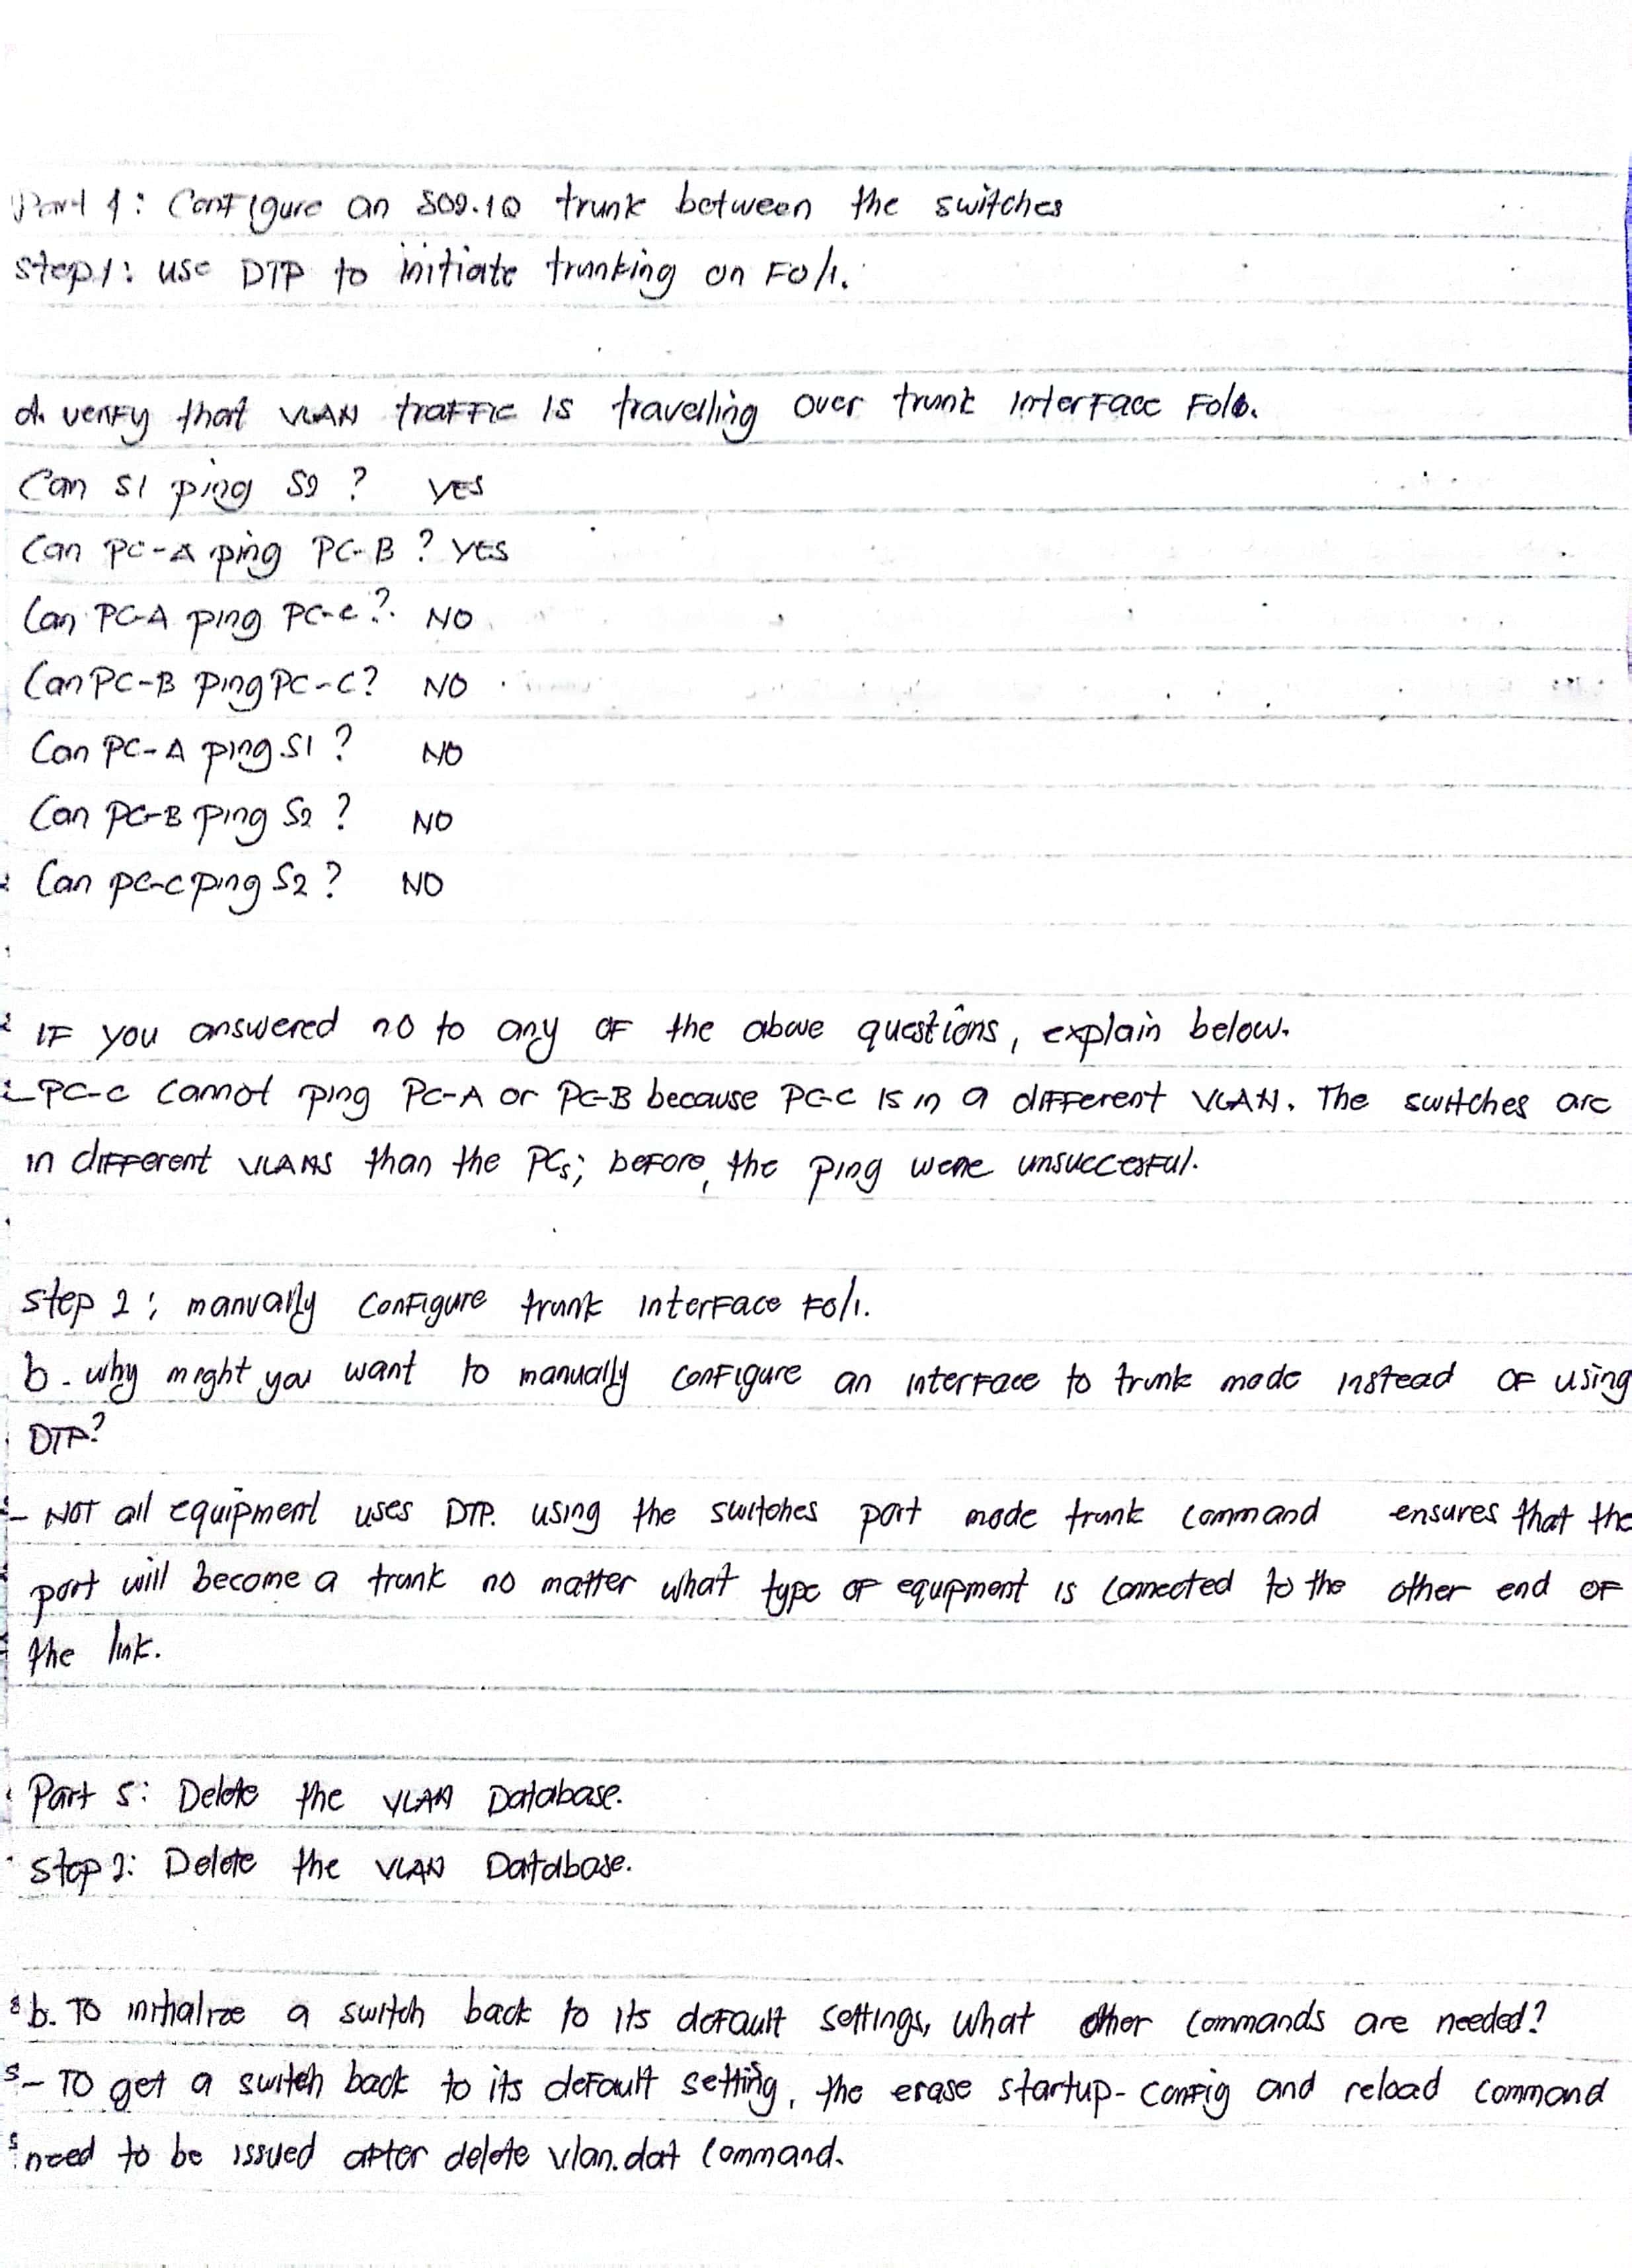 Part 4: Configure an 802.1Q trunk between the switches
Step 1: use DTP to initiate trunking on F0/1.
d. verify that VLAN traffic is travelling over trunk interface F0/1.
Can S1 ping S2 ? YES
Can PC-A ping PC-B ? YES
Can PC-A ping PC-C ? NO
Can PC-B ping PC-C? NO
Can PC-A ping S1 ? NO
Can PC-B ping S2 ? NO
Can PC-C ping S2 ? NO
IF you answered no to any of the above questions, explain below.
- PC-C cannot ping PC-A or PC-B because PC-C is in a different VLAN. The switches are
in different VLANs than the PCs; before, the ping were unsuccesful.
Step 2 : manually configure trunk interface F0/1.
b. why might you want to manually configure an interface to trunk mode instead of using
DTP?
- NOT all equipment uses DTP. using the switches port mode trunk command ensures that the
port will become a trunk no matter what type of equipment is connected to the other end of
the link.
Part 5: Delete the VLAN Database.
Step 1: Delete the VLAN Database.
b. To initialize a switch back to its default settings, what other commands are needed?
- To get a switch back to its default setting, the erase startup-config and reload command
need to be issued after delete vlan.dat command.